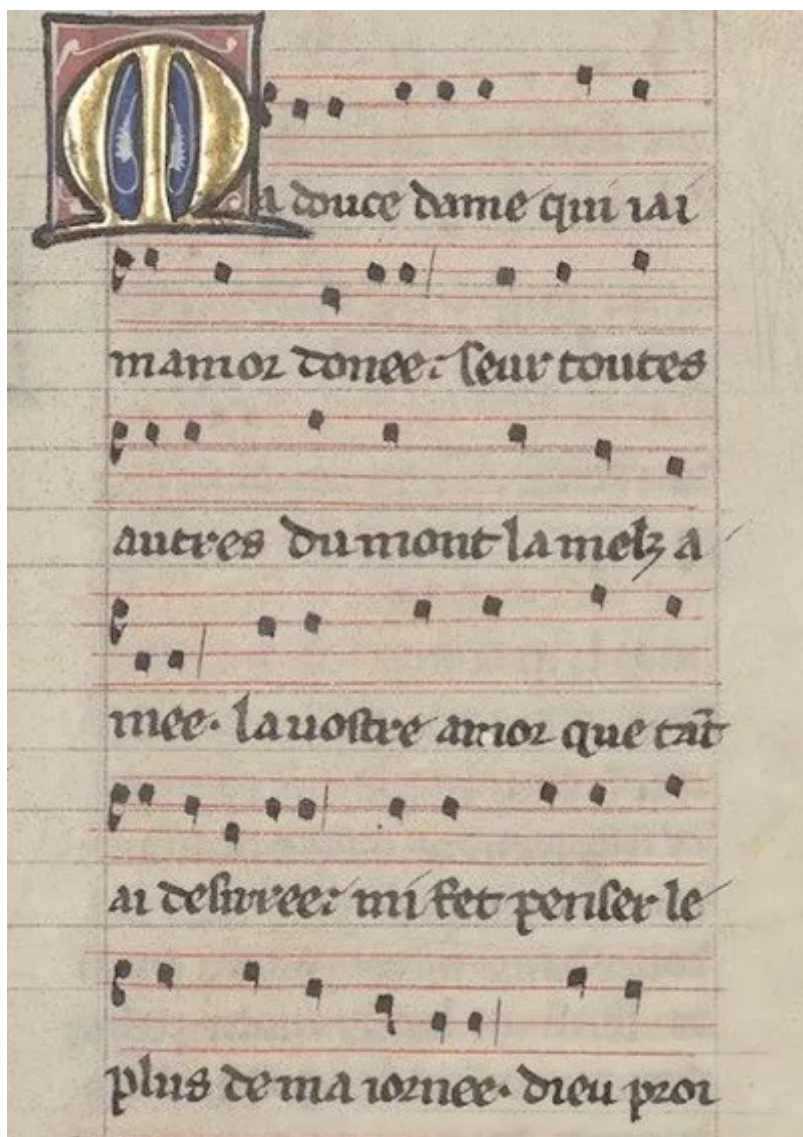 Ma douce dame qui iai
mamor donee: seur toutes
autres du mont lamelz a
mee. la uostre amor que tãt
ai desirree: mi fet penser le
plus de ma iornee. dieu proi